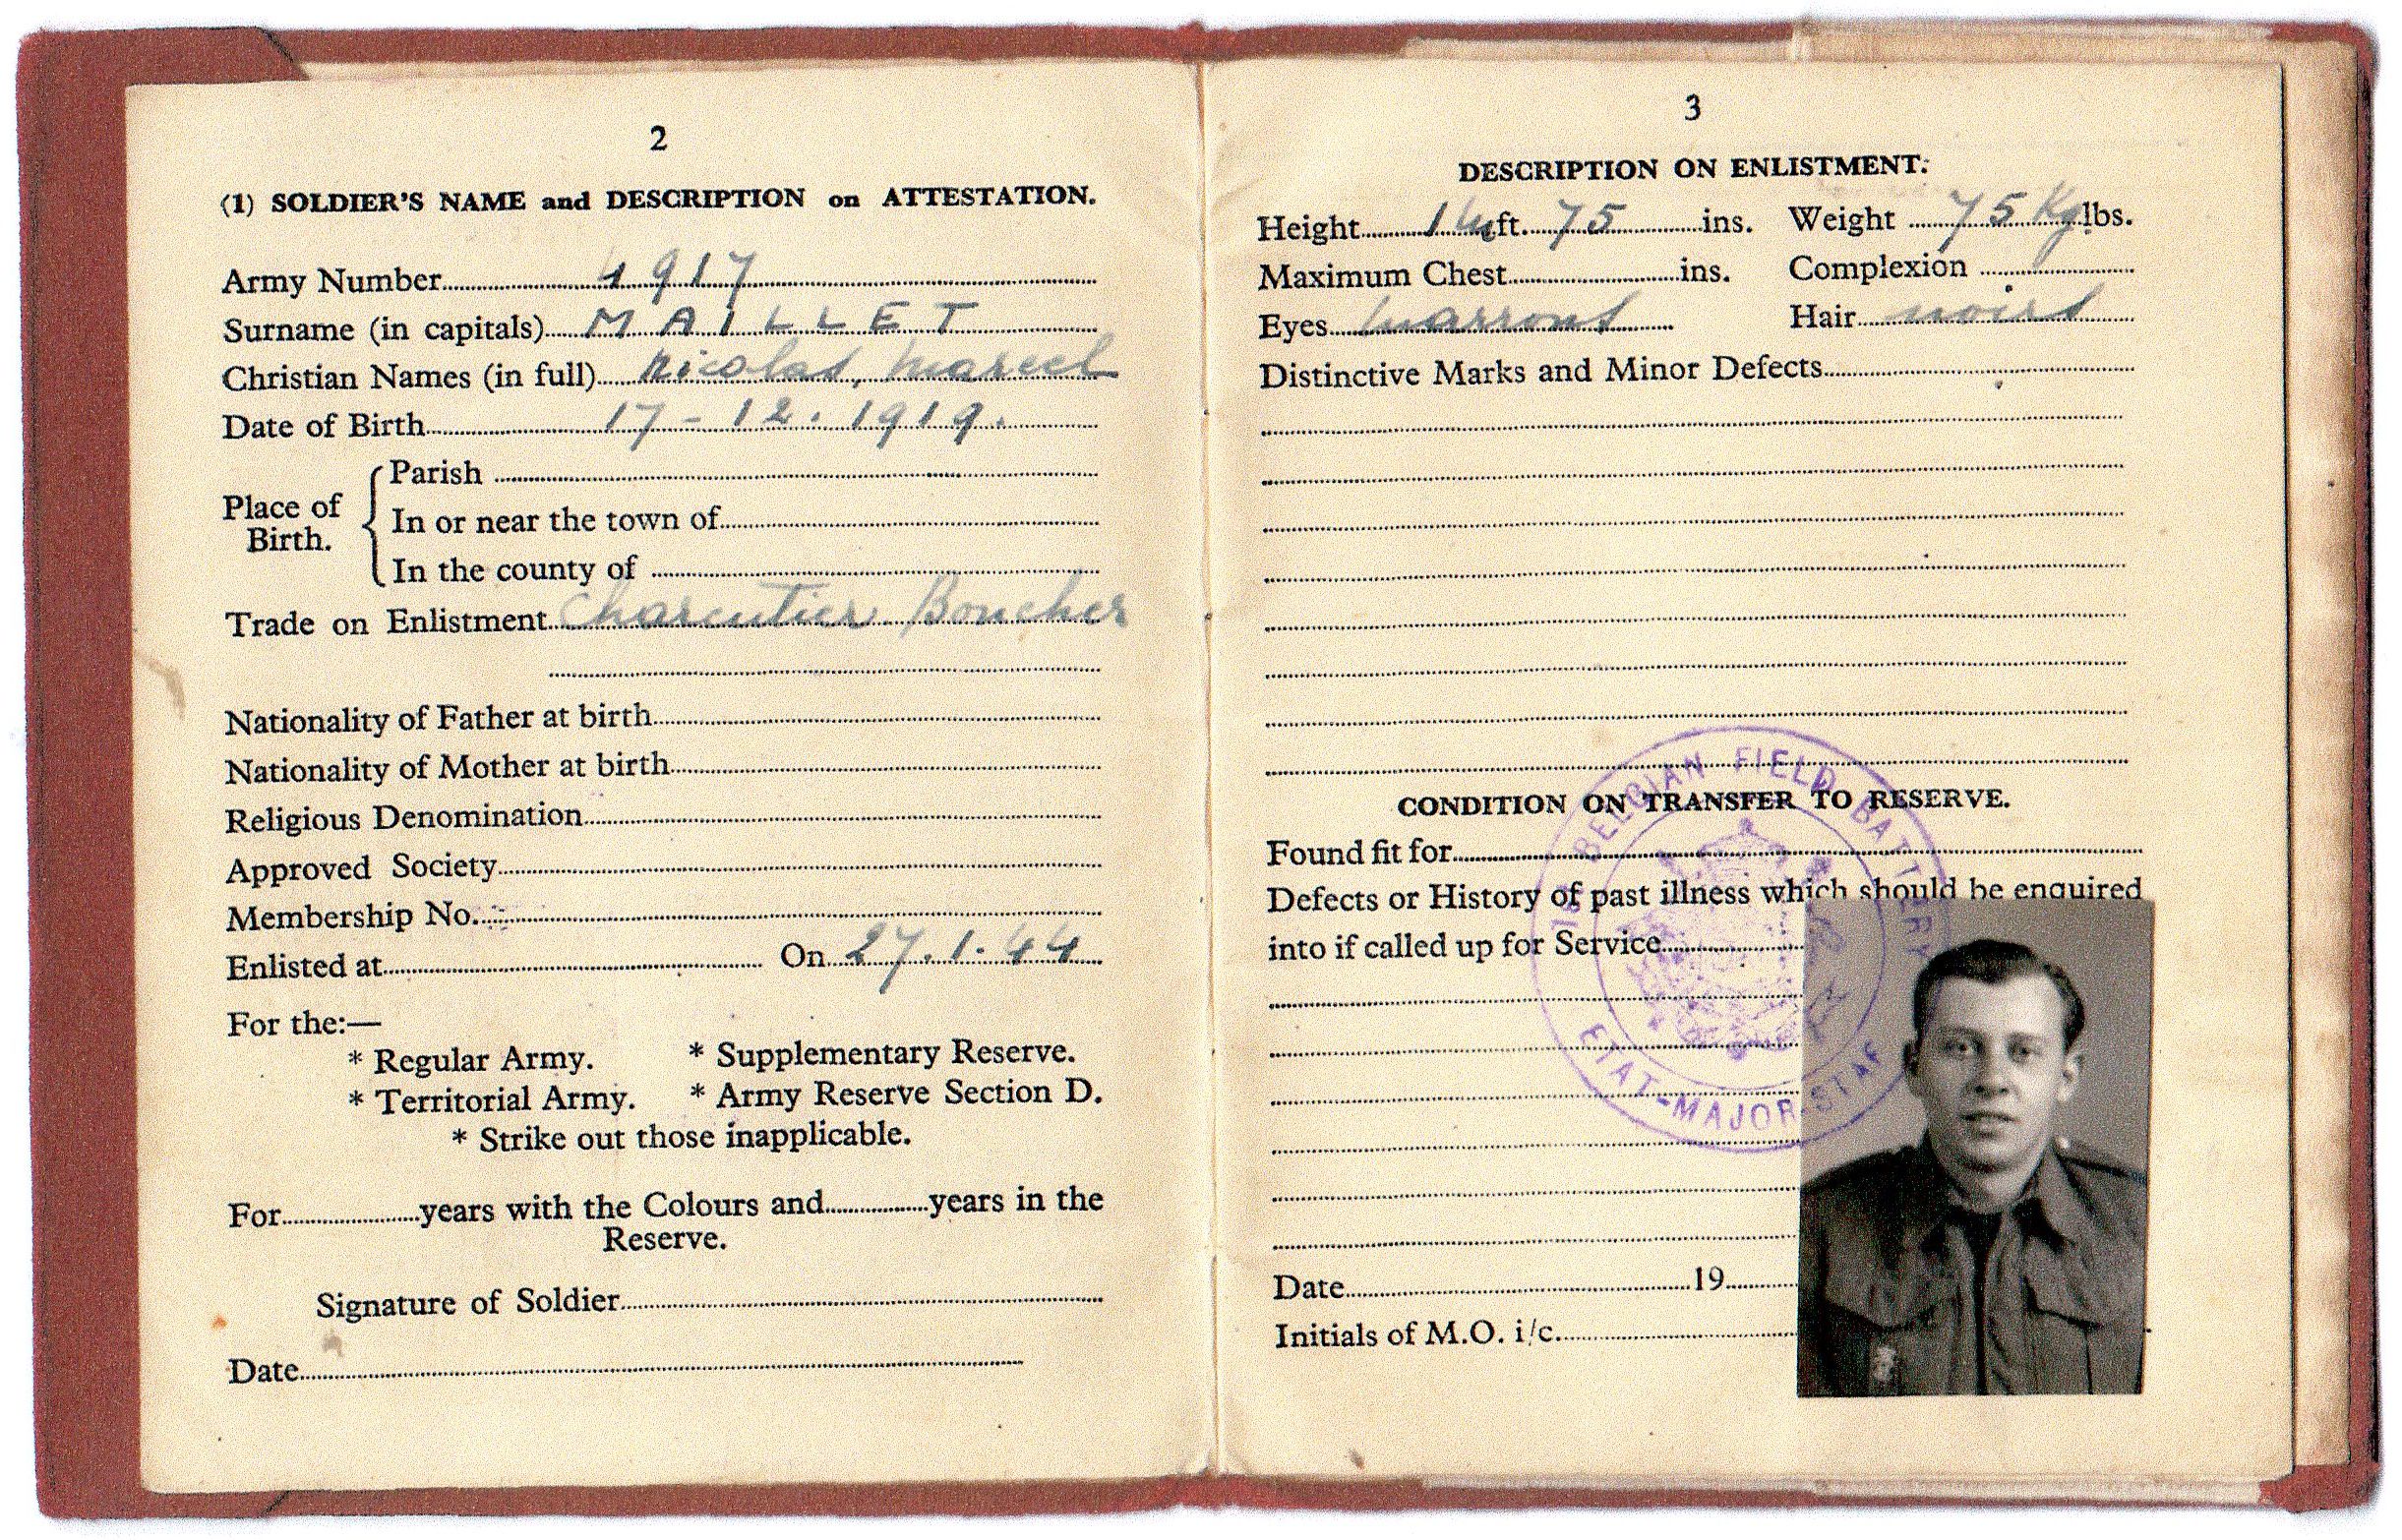 2
(1) SOLDIER'S NAME and DESCRIPTION on ATTESTATION.
Army Number 4917
Surname (in capitals) MAILLET
Christian Names (in full) Nicolas, Marcel
Date of Birth 17-12.1919.
Place of Birth.
Parish
In or near the town of
In the county of
Trade on Enlistment Charcutier Boucher
Nationality of Father at birth
Nationality of Mother at birth
Religious Denomination
Approved Society
Membership No.
Enlisted at On 27.1.44
For the:—
* Regular Army. * Supplementary Reserve.
* Territorial Army. * Army Reserve Section D.
* Strike out those inapplicable.
For years with the Colours and years in the
Reserve.
Signature of Soldier
Date
3
DESCRIPTION ON ENLISTMENT.
Height 1 m ft. 75 ins. Weight 75 Kg lbs.
Maximum Chest ins. Complexion
Eyes marrons Hair noirs
Distinctive Marks and Minor Defects
CONDITION ON TRANSFER TO RESERVE.
Found fit for
Defects or History of past illness which should be enquired
into if called up for Service
Date 19
Initials of M.O. i/c.
BELGIAN FIELD BATTERY
ETAT-MAJOR-STAF